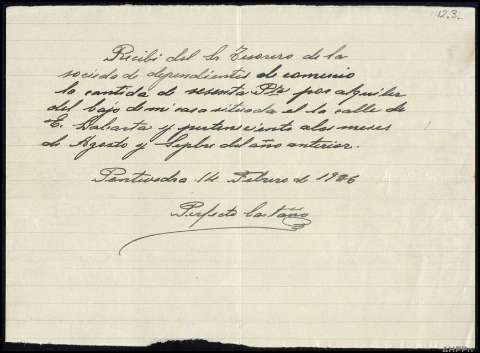 123.
Recibí del Sr Tesorero de la
sociedad de dependientes de comercio
la cantida de sesenta Pts por alquiler
del bajo de mi casa situada el la calle de
E. Labarta y perteneciente a los meses
de Agosto y Sepbre del año anterior.
Pontevedra 14 Febrero de 1906
Perfecto Castaño